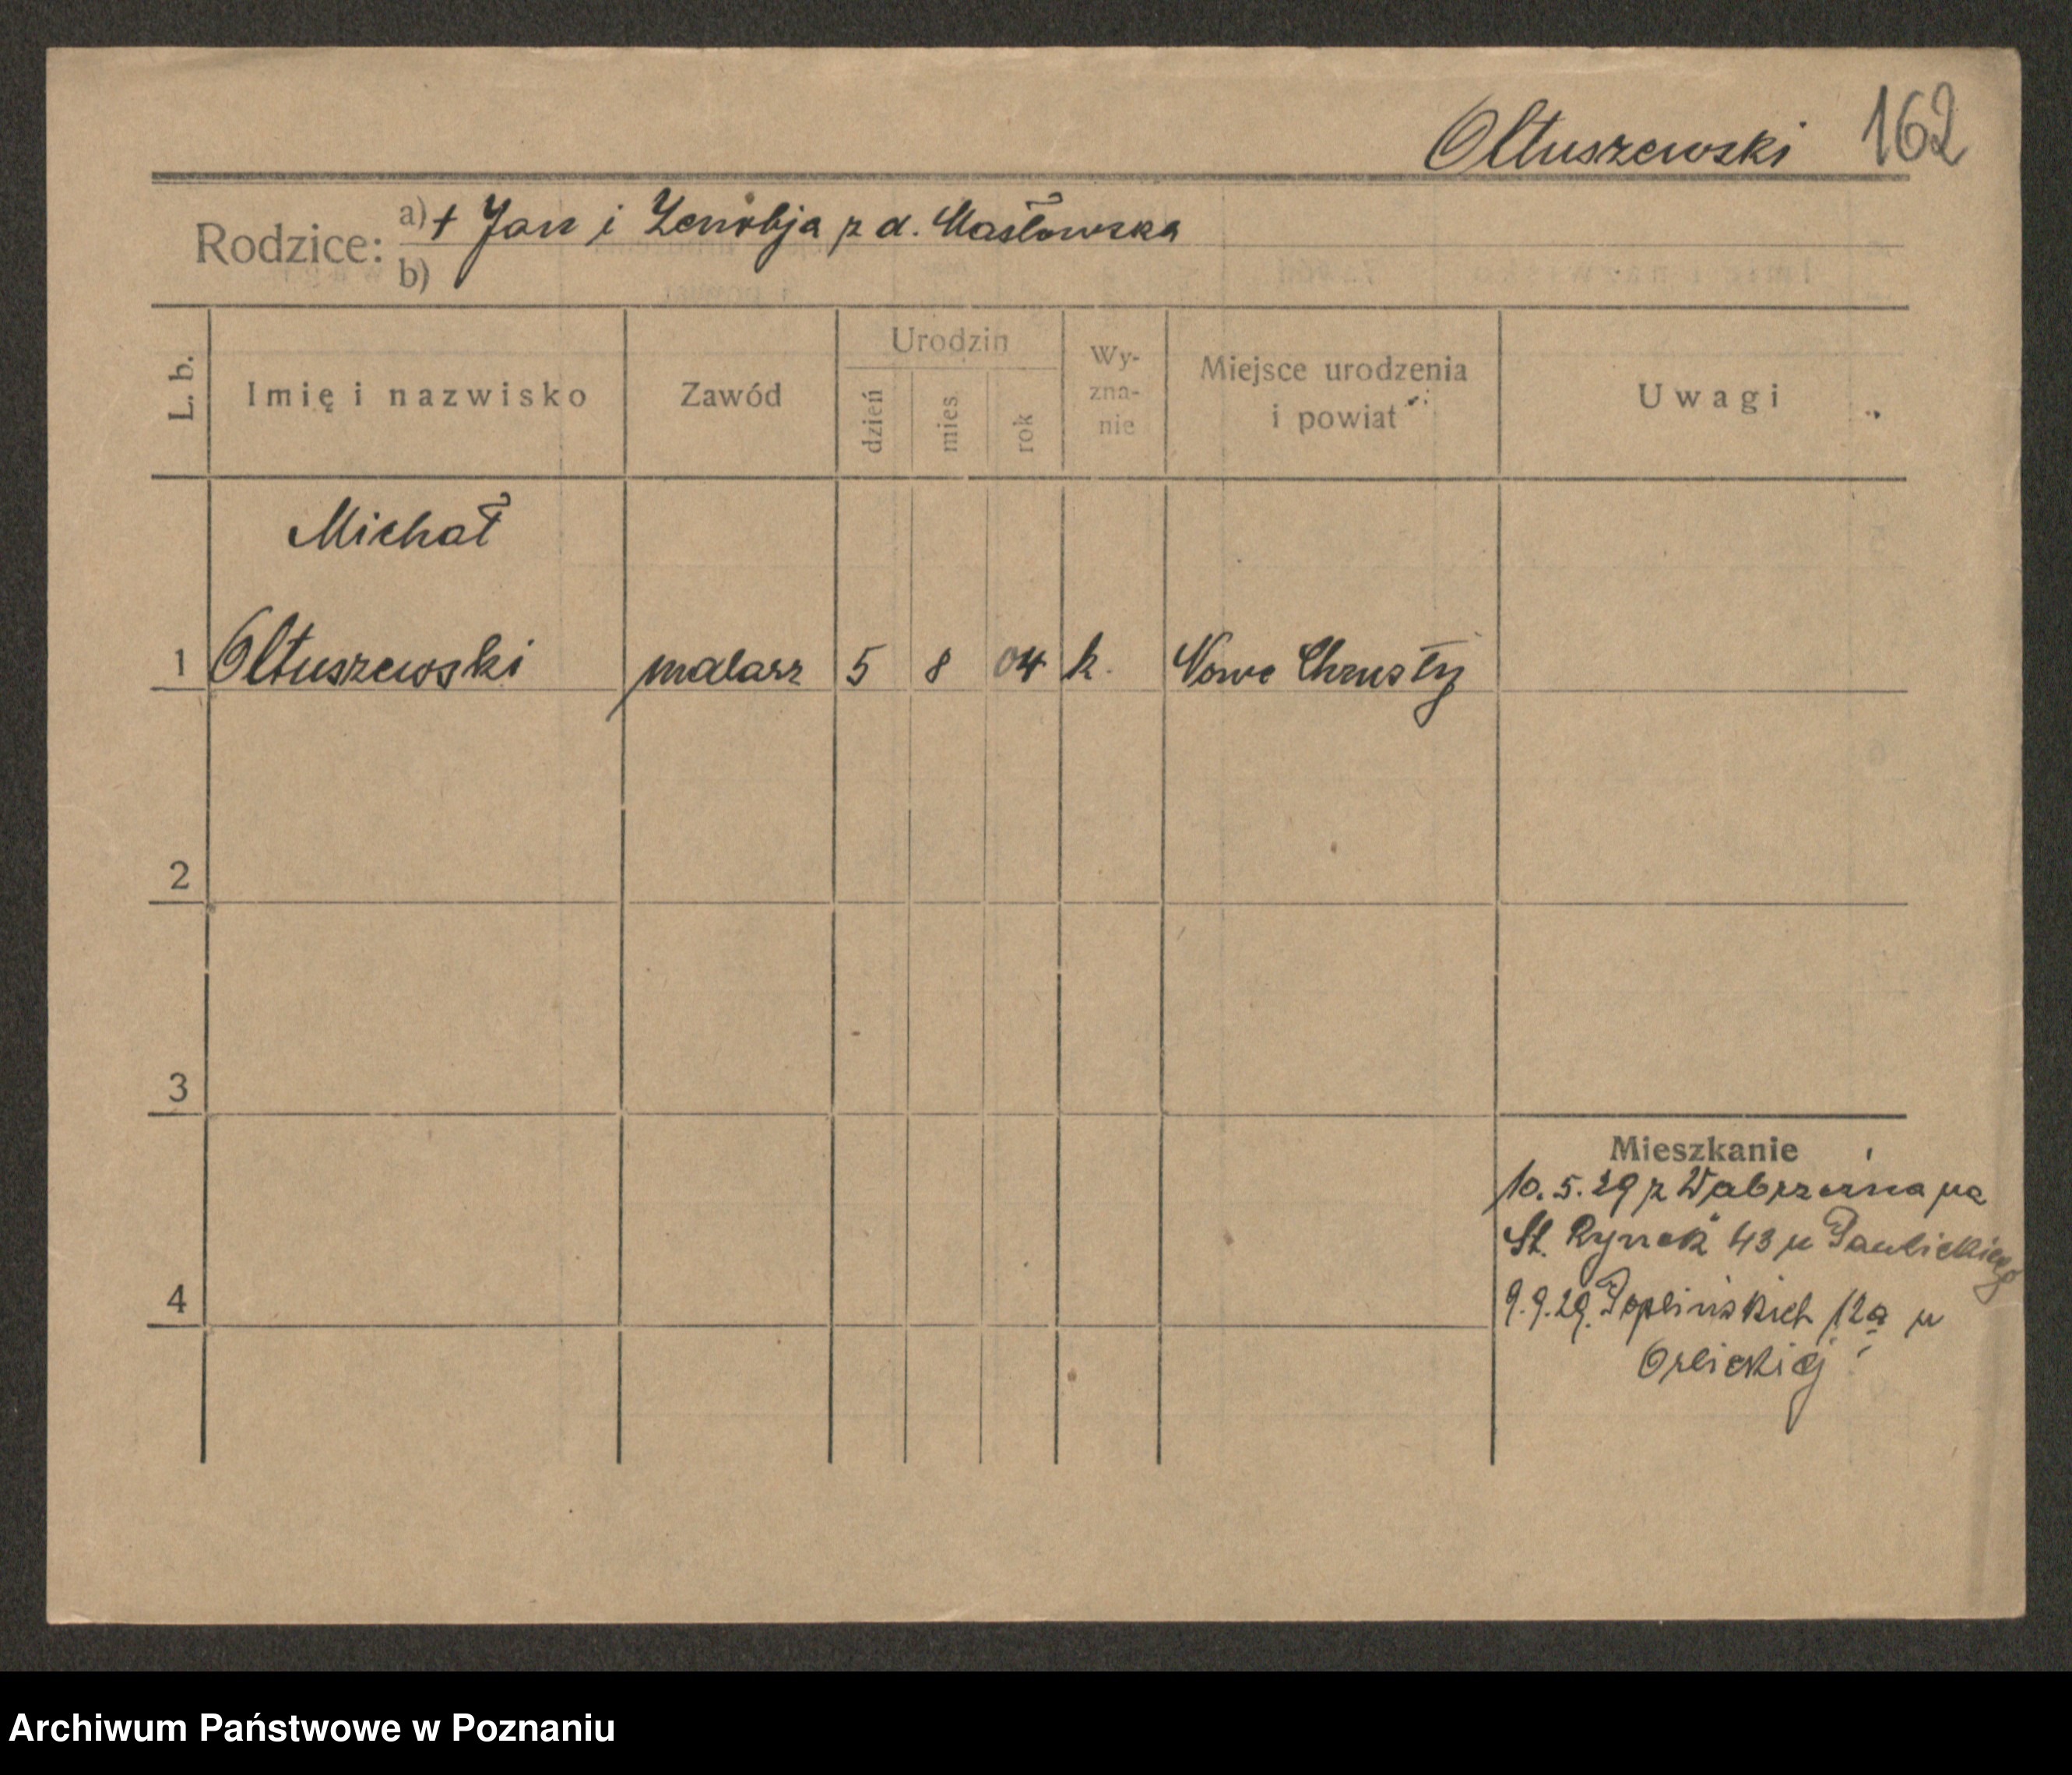 Ołtuszewski 162
Rodzice: a) + Jan i Zenobja z d. Masłowska
b)
L. b. Imię i nazwisko Zawód Urodzin dzień mies. rok Wy-zna-nie Miejsce urodzenia i powiat Uwagi
Michał
1 Ołtuszewski malarz 5 8 04 k. Nowe Chrusty
2
3
Mieszkanie
10.5.29 z Wąbrzeźna na
St. Rynek 43 u Pawlickiego
4
9.9.29. Poplińskich 12a u
Orlickiej
Archiwum Państwowe w Poznaniu